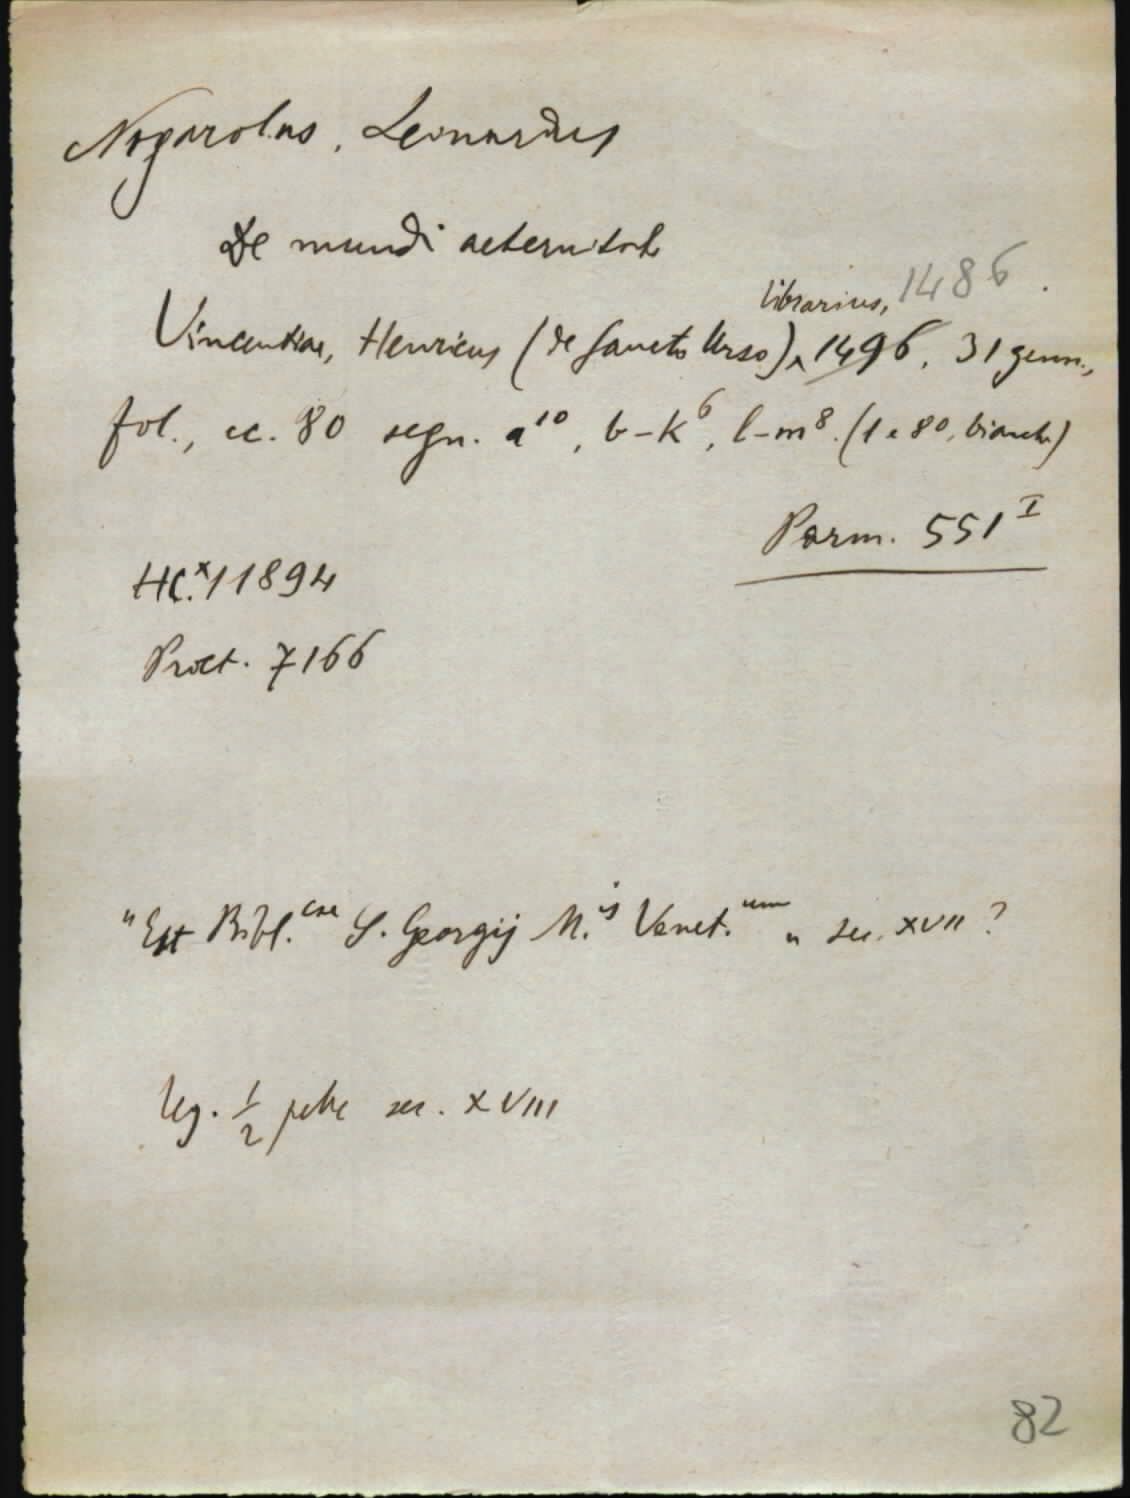 Nogarolus, Leonardus
De mundi aeternitate
librarius, 1486.
Vincentiae, Henricus (de Sancto Urso), 1496, 31 genn.,
fol., cc. 80 segn. a¹⁰, b-k⁶, l-m⁸. (1 e 80, bianche)
Parm. 551ᴵ
HC.ˣ11894
Proct. 7166
"Est Bibl.cae S. Georgij M.is Venet.um" sec. XVII?
Leg. 1/2 pelle sec. XVIII
82